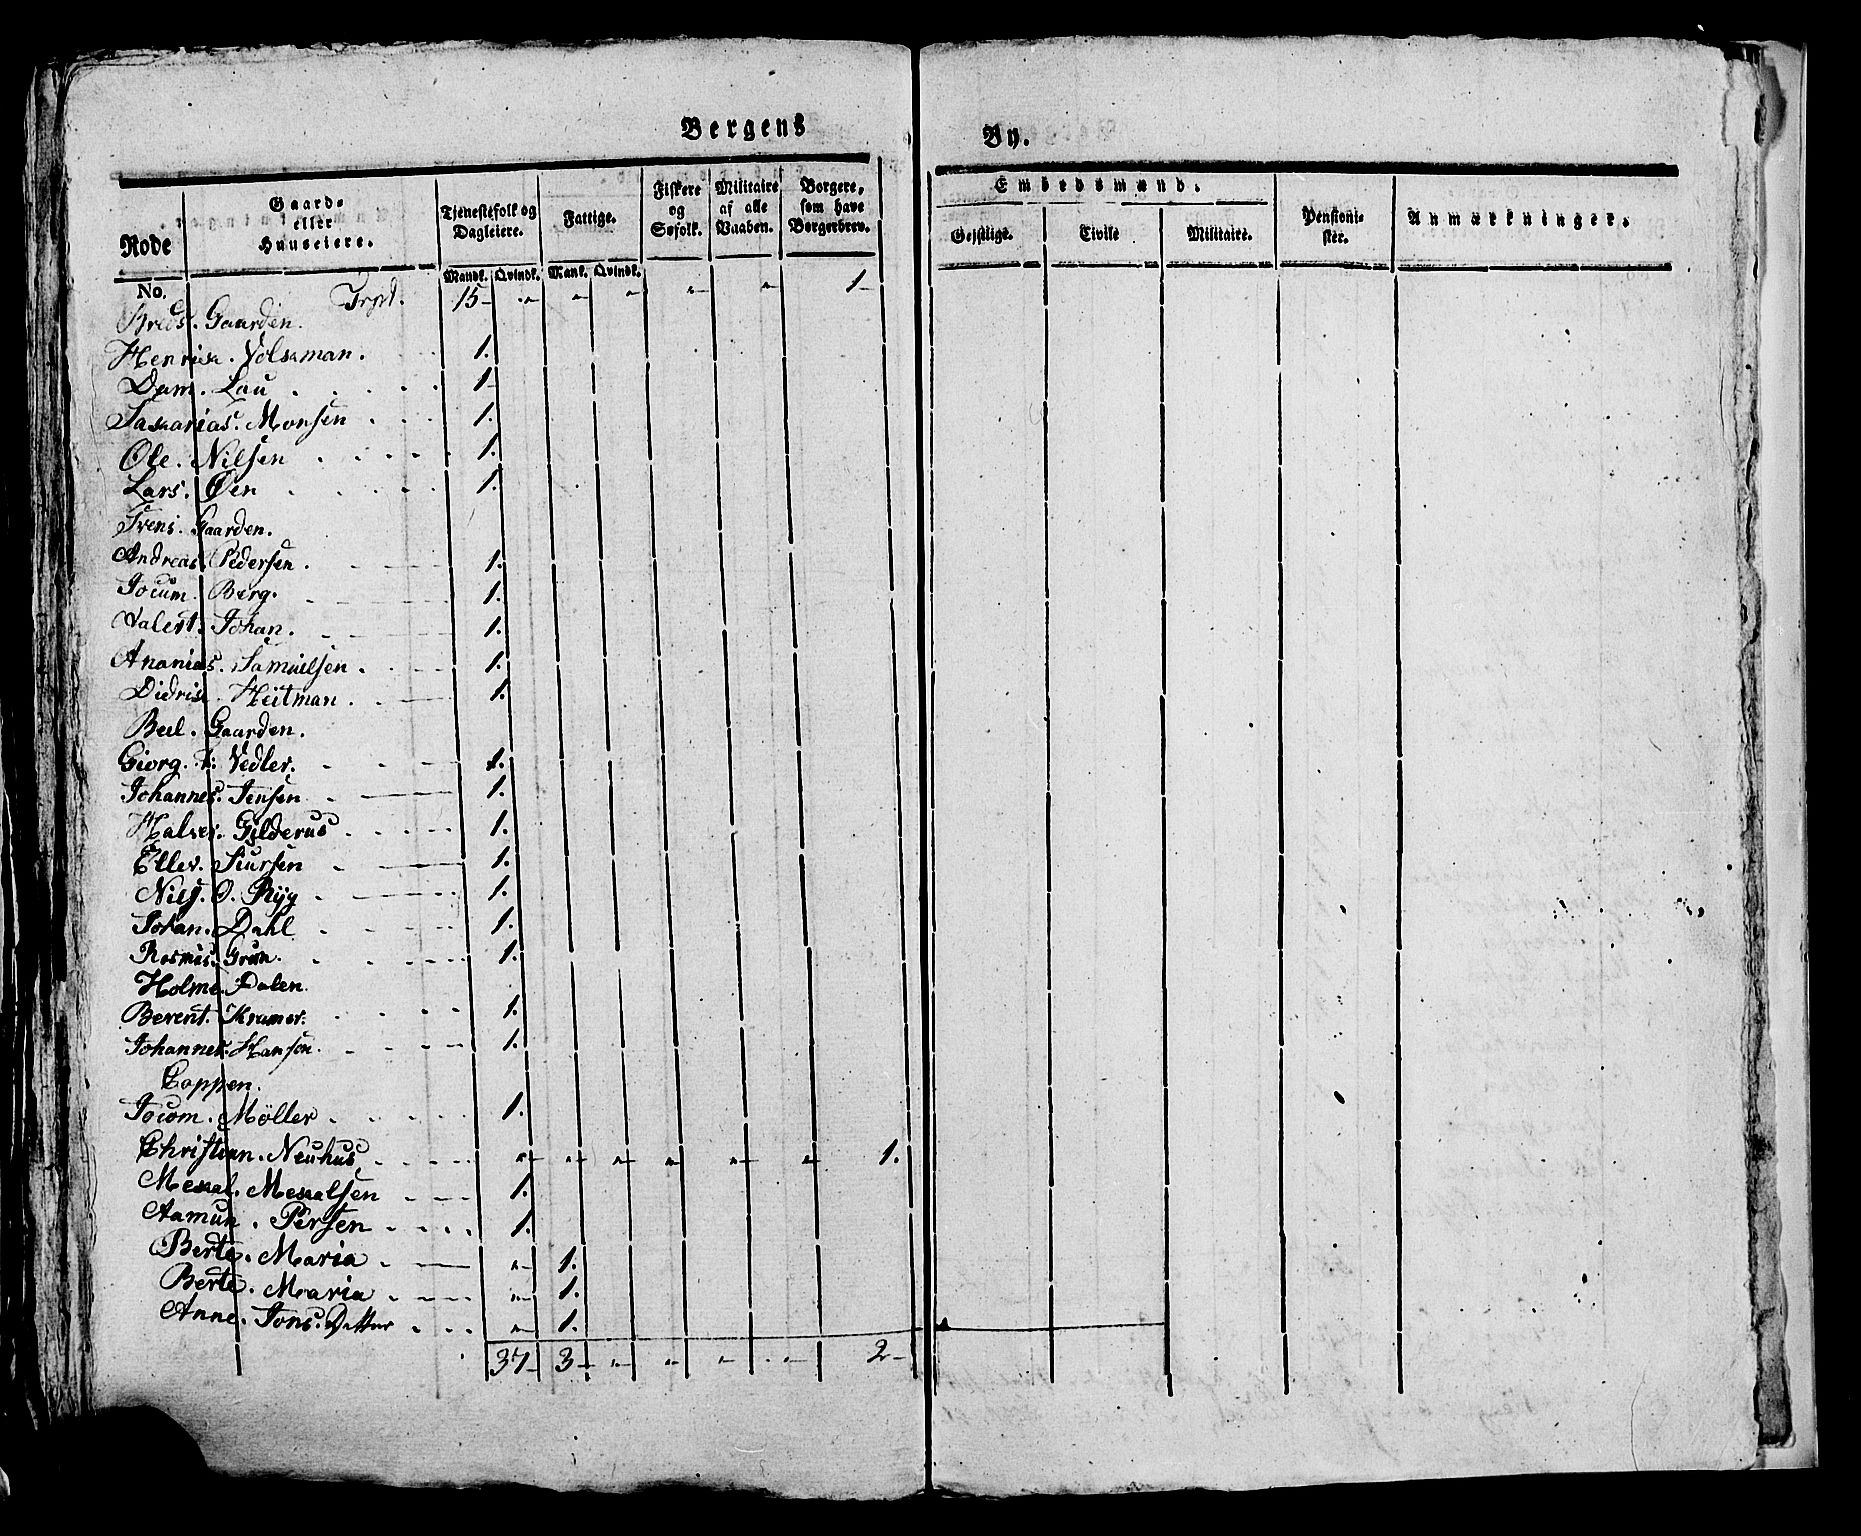 Bergens By.
Rode No.
Gaard- eller Huuseiere.
Tjenestefolk og Dagleiere.
Mandk. Qvindk.
Fattige.
Mank. Qvindk.
Fiskere og Søfolk.
Militaire af alle Vaaben.
Borgere, som have Borgerbrev.
Embedsmænd.
Gejstlige. Civile Militaire.
Pensionister.
Anmærkninger.
Trpt. 15 - „ „ „ „ „ 1 -
Gaarden.
Henrick. Volckman. 1.
Dam. Lau 1.
Monsen 1.
Ole. Nilsen 1.
Lars. Øen 1.
Svens. Gaarden.
Andreas. Pedersen 1.
Jocum. Berg. 1.
Valert. Johan. 1.
Ananias. Samuelsen 1.
Didrick. Heitman 1.
Gaarden.
Giorg. Vedler. 1.
Johannes. Jensen 1.
Gilderus 1.
Siursen 1.
Nils. O. Ryg 1.
Johan. Dahl 1.
Rasmus. Grun. 1.
Holme. Dalen.
Berent. Kramer. 1.
Johannes. Hansen. 1.
Coppen.
Jocom. Möller 1.
Christian. Neuhus „ „ „ „ „ „ 1.
Meckal. Meckalsen 1.
Aamun. Persen 1.
Berte. Maria „ 1.
Berte. Maria „ 1.
Anne. Jons. Datter „ 1.
37 - 3 - „ „ „ „ 2 -